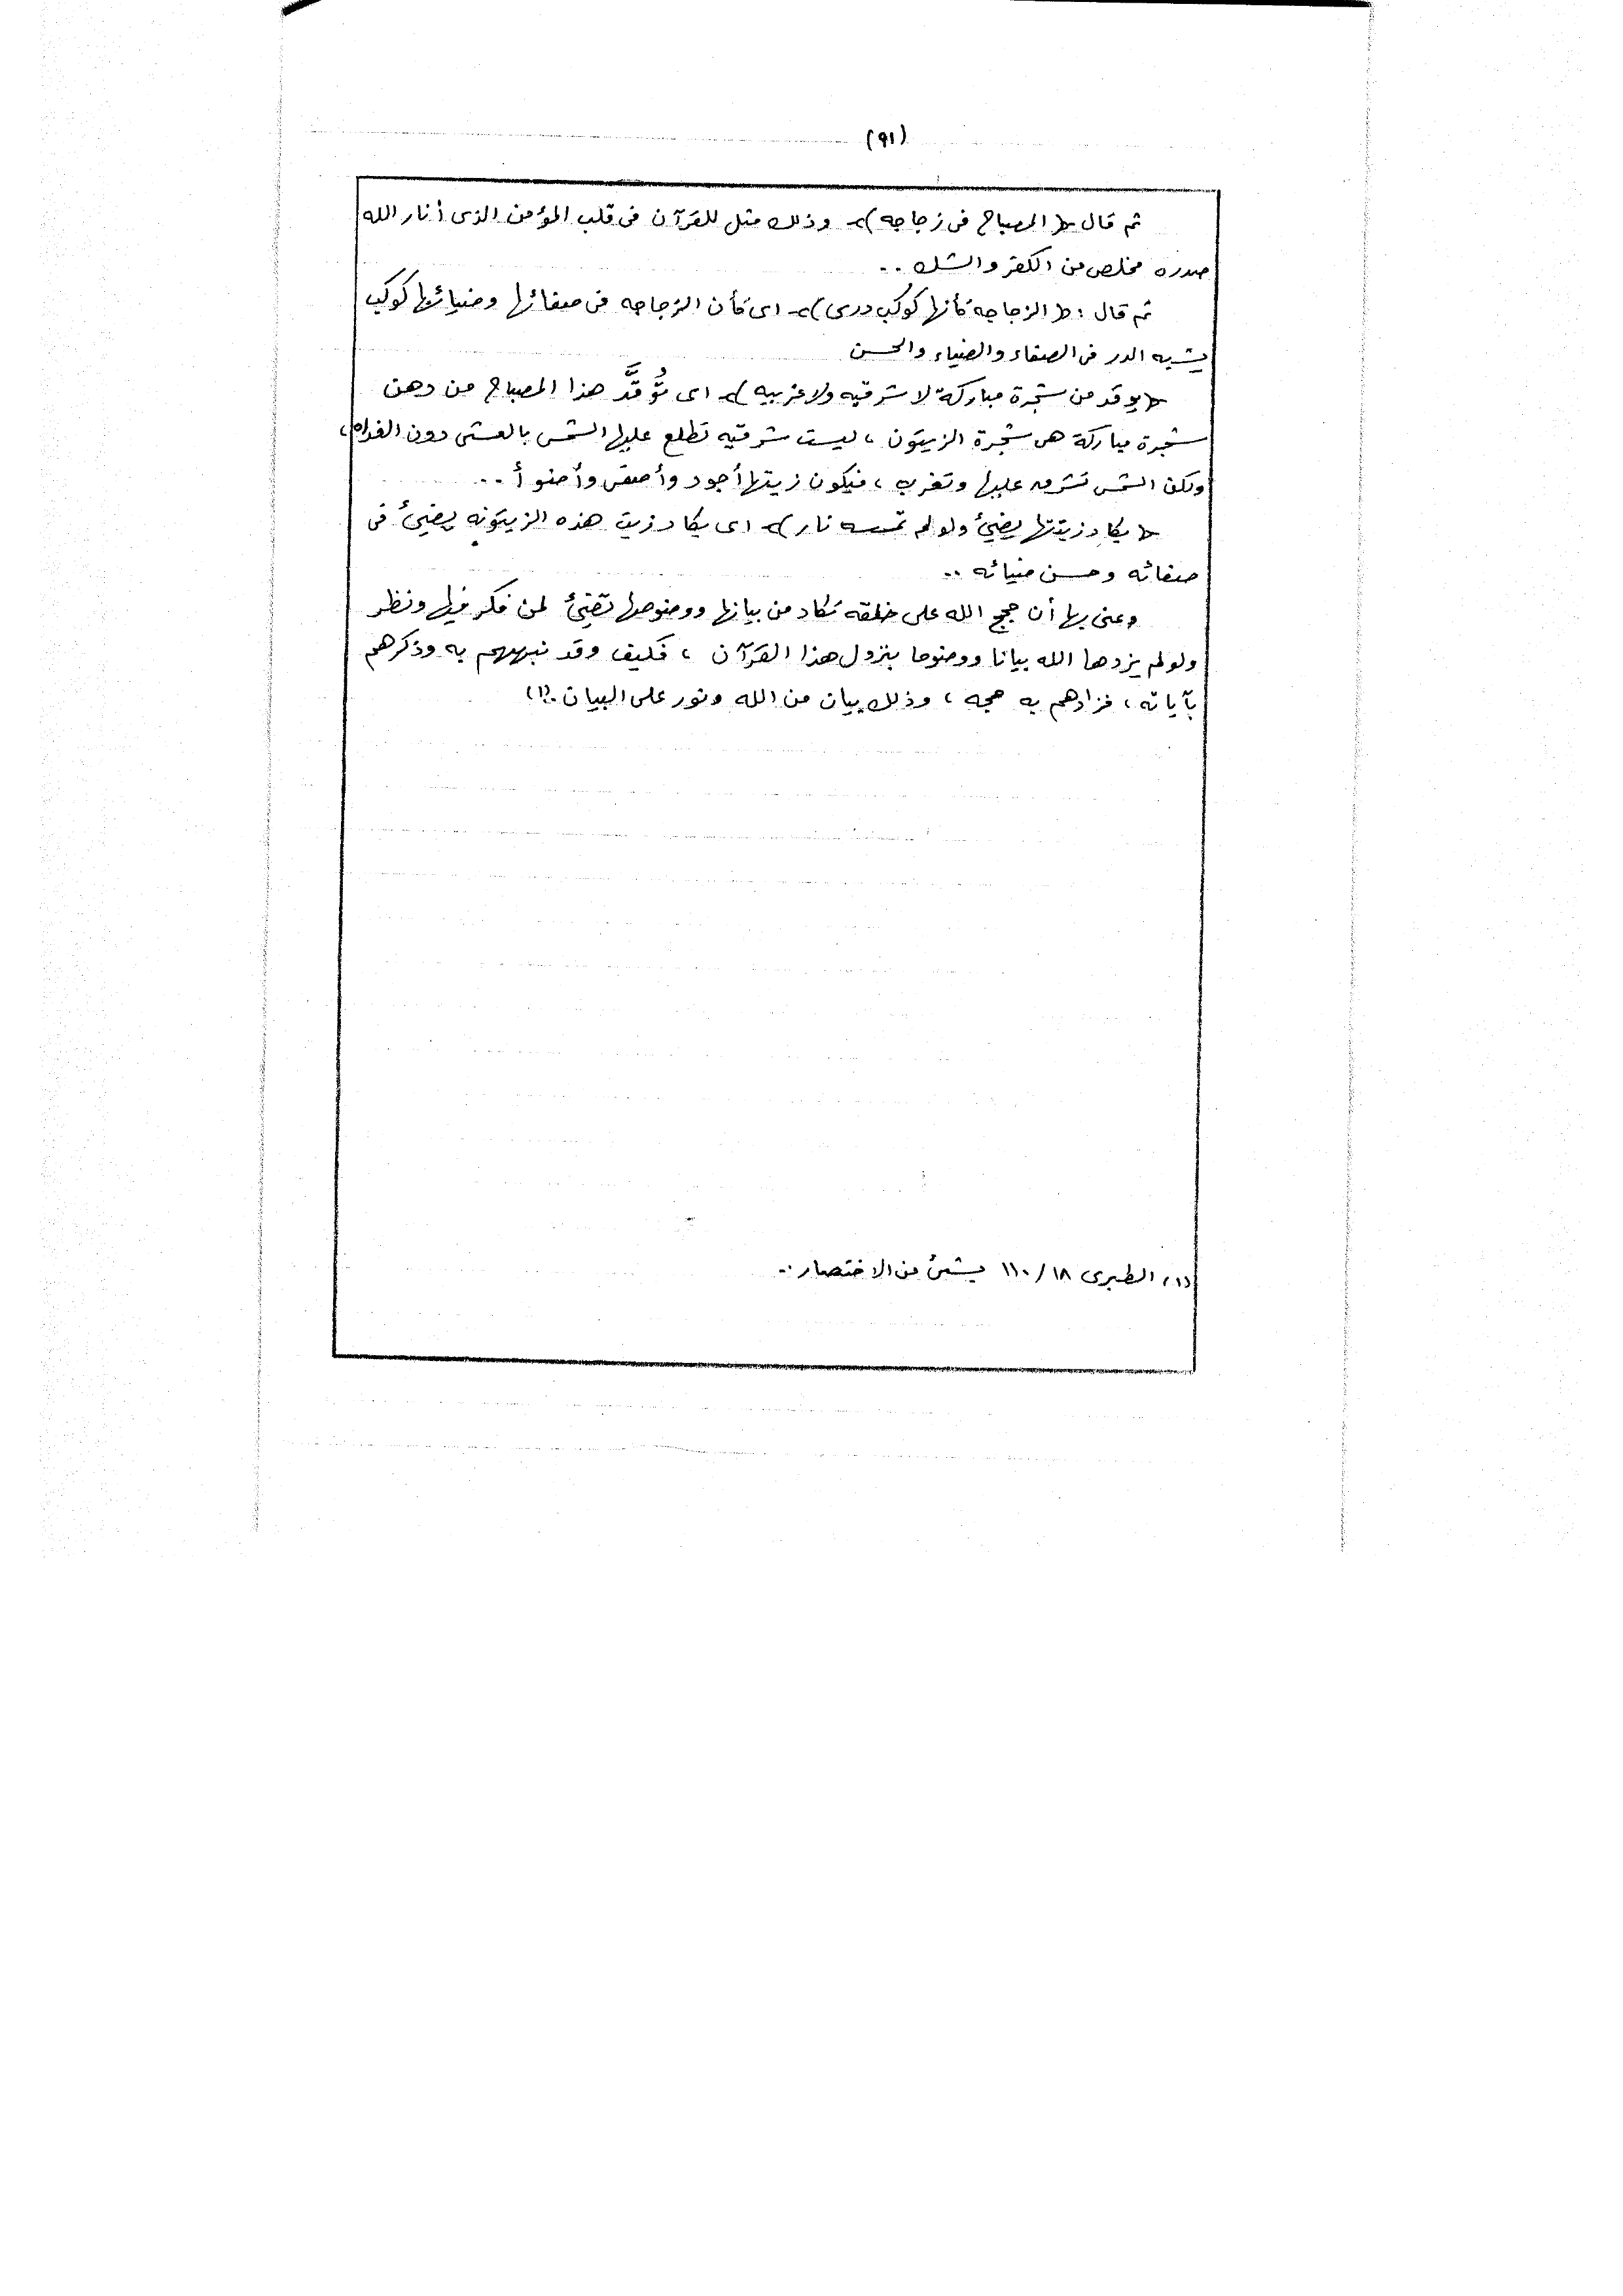 (٩١)
ثم قال ﴿ المصباح فى زجاجه ﴾ وذلك مثل للقرآن فى قلب المؤمن الذى أنار الله
صدره فخلص من الكفر والشك ..
ثم قال : ﴿ الزجاجه كأنها كوكب درى ﴾ اى كأن الزجاجه فى صفائها وضيائها كوكب
يشبه الدر فى الصفاء والضياء والحسن
﴿ يوقد من شجرة مباركة لا شرقيه ولا غربيه ﴾ اى تُوُقَّدَ هذا المصباح من دهن
شجرة مباركة هى شجرة الزيتون ، ليست شرقيه تطلع عليها الشمس بالعشى دون الغداه ،
ولكن الشمس تشرق عليها وتغرب ، فيكون زيتها أجود وأصفى وأضوأ ..
﴿ يكاد زيتها يضئ ولو لم تمسسه نار ﴾ اى يكاد زيت هذه الزيتونه يضئ فى
صفائه وحسن ضيائه ..
وعنى بها أن حجج الله على خلقه تكاد من بيانها ووضوحها تضئ لمن فكر فيها ونظر
ولو لم يزدها الله بيانا ووضوحا بنزول هذا القرآن ، فكيف وقد نبههم به وذكرهم
بآياته ، فزادهم به حجه ، وذلك بيان من الله ونور على البيان .(١)
(١) الطبرى ١٨/ ١١٠ بشئ من الاختصار ..